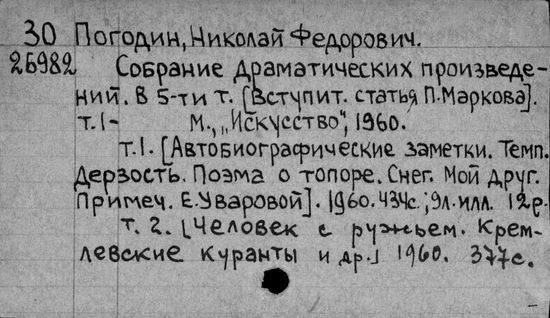 30 Погодин, Николай Федорович.
26982 Собрание драматических произведе-
ний. В 5-ти т. [Вступит. статья П.Маркова].
т.1- М., „Искусство", 1960.
т.1. [Автобиографические заметки. Темп.
Дерзость. Поэма о топоре. Снег. Мой друг.
Примеч. Е.Уваровой]. 1960. 434с.; 9л.илл. 12р.
т. 2. [Человек с ружьем. Крем-
левские куранты и др.] 1960. 377с.